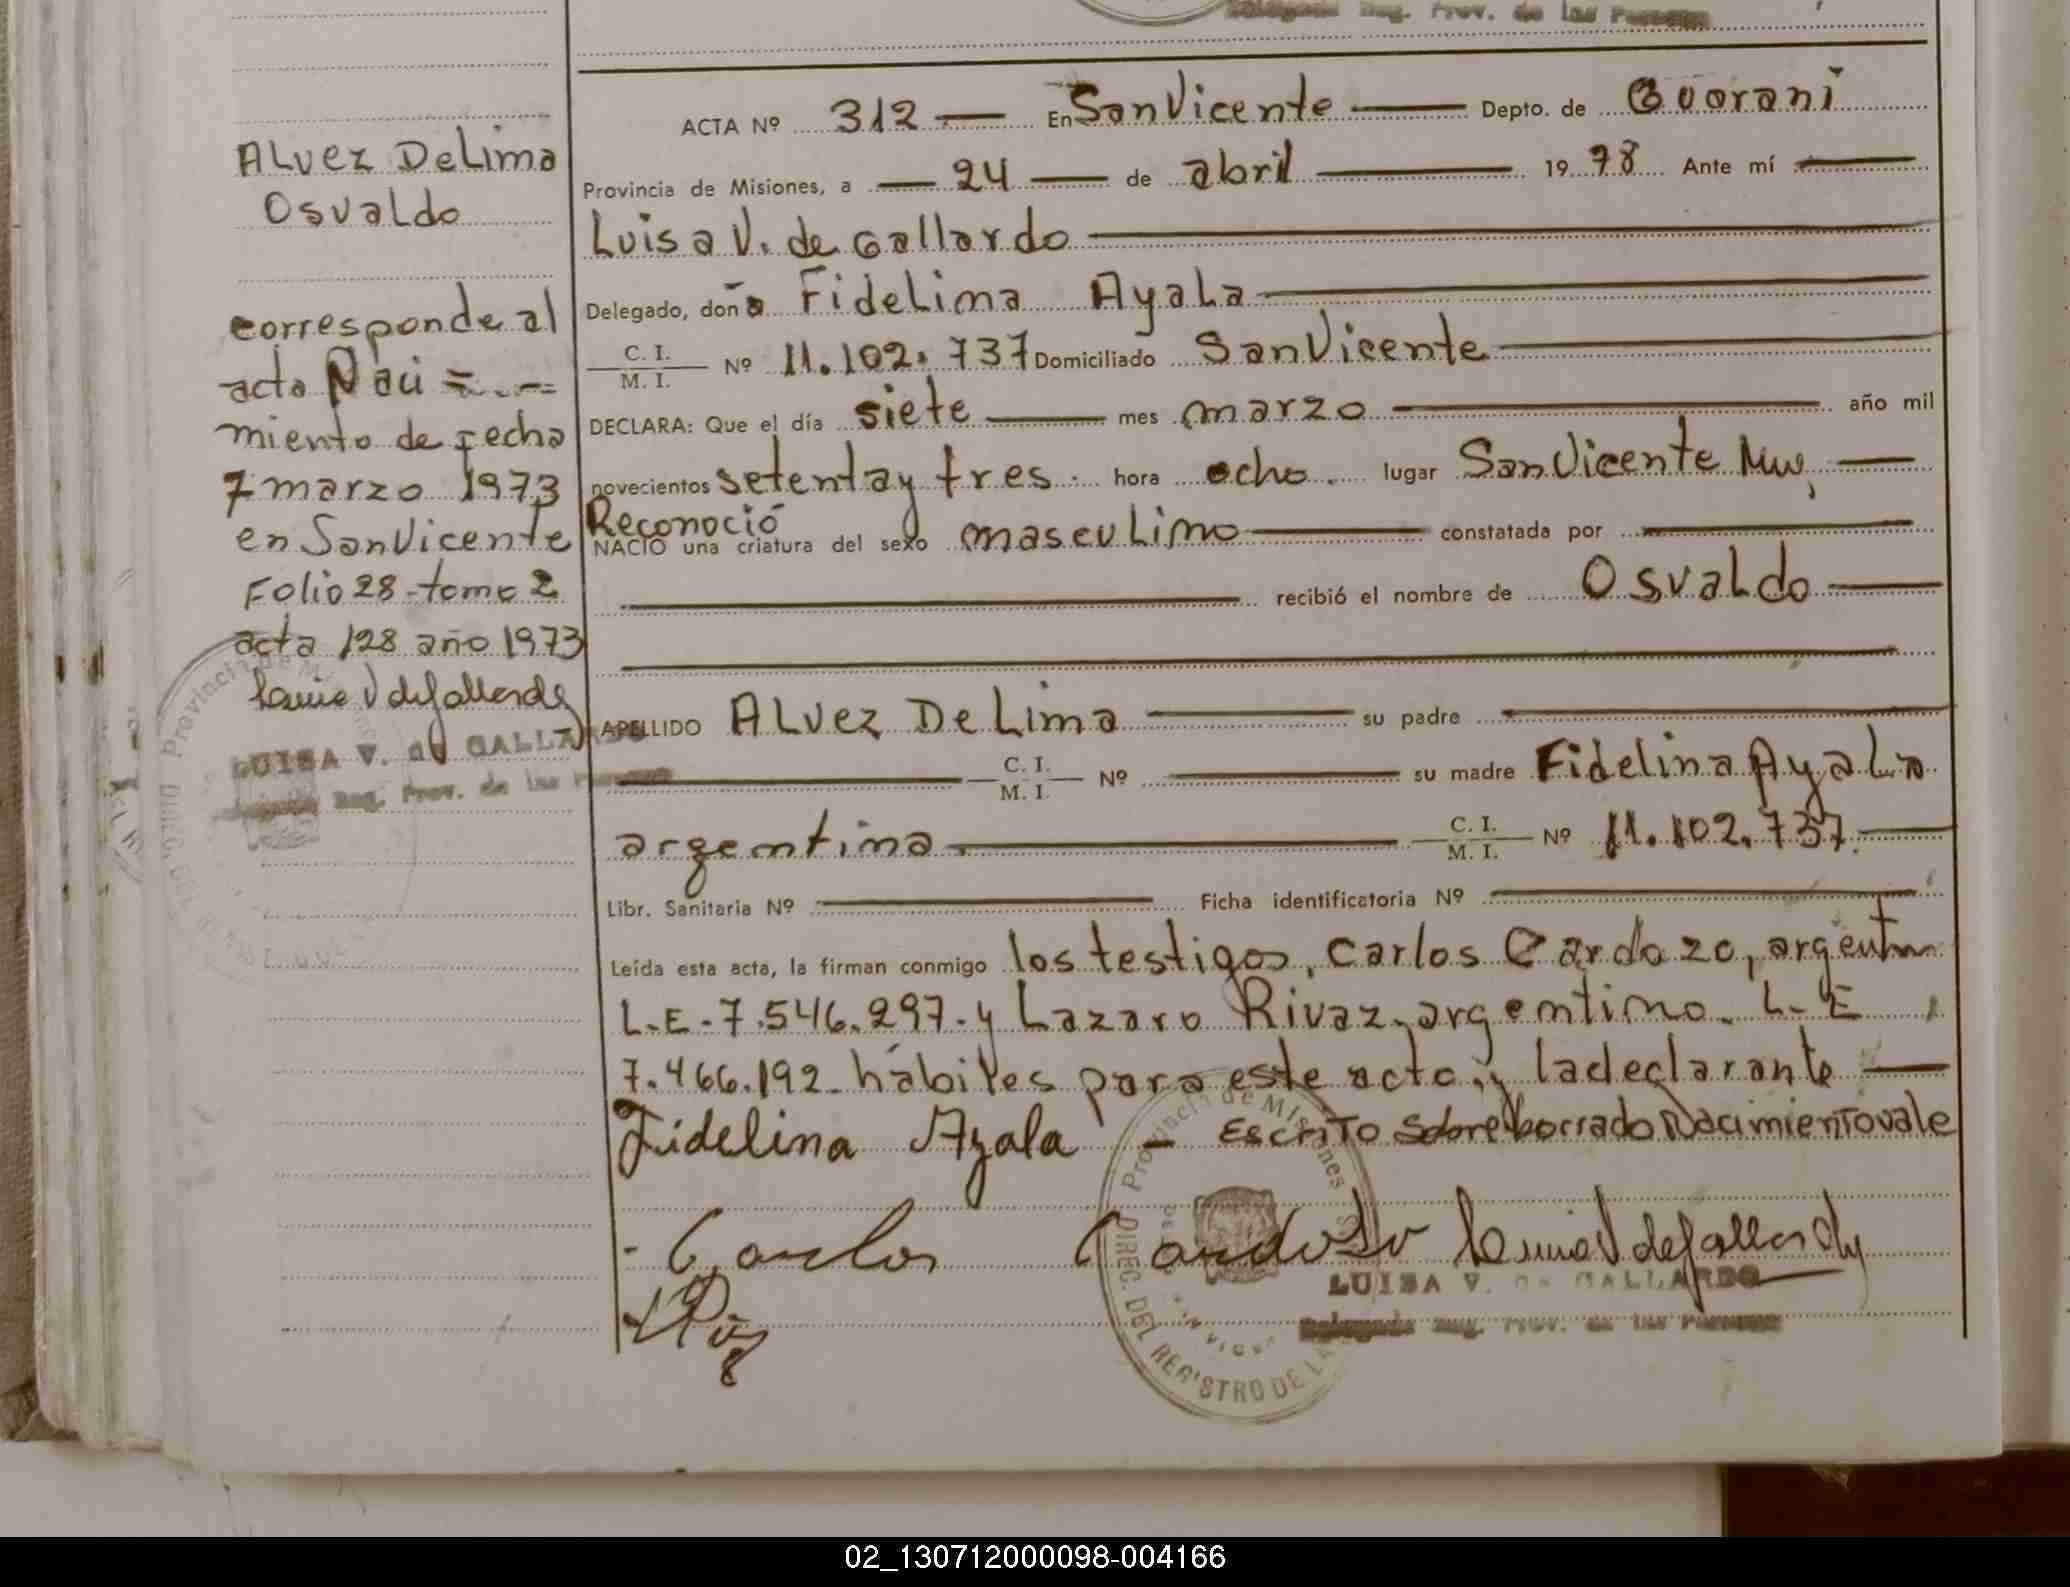 Delegada Reg. Prov. de las Personas
ALvez DeLima
Osvaldo
corresponde al
acta Naci=.-=
miento de fecha
7 marzo 1973
en San Vicente
Folio 28-tomo 2
acta 128 año 1973
Luisa V de Gallardo
LUISA V. de GALLARDO
Delegada Reg. Prov. de las Personas
Provincia de Misiones
ACTA Nº 312 — En San Vicente — Depto. de Guarani
Provincia de Misiones, a — 24 — de abril — 1978 Ante mí —
Luisa V. de Gallardo —
Delegado, doña Fidelima Ayala —
C. I.
M. I. Nº 11.102.737 Domiciliado San Vicente —
DECLARA: Que el día siete — mes marzo — año mil
novecientos setenta y tres. hora ocho. lugar San Vicente Mns, —
Reconoció
NACIO una criatura del sexo masculino — constatada por —
— recibió el nombre de Osvaldo —
APELLIDO ALvez DeLima — su padre —
— C. I.
M. I. Nº — su madre Fidelina Ayala
argentina. — C. I.
M. I. Nº 11.102.737. —
Libr. Sanitaria Nº — Ficha identificatoria Nº —
Leída esta acta, la firman conmigo los testigos, Carlos Cardozo, argentin
L.E.-7.546.297.-y Lazaro Rivaz, argentino. L-E
7.466.192- hábiles para este acto, y la declarante —
Fidelina Ayala — Escrito sobre borrado Nacimiento vale
Carlos Cardozo Luisa V de Gallardo
LUISA V. de GALLARDO
Delegada Reg. Prov. de las Personas
Provincia de Misiones
DIREC. DEL REGISTRO DE LA
02_130712000098-004166